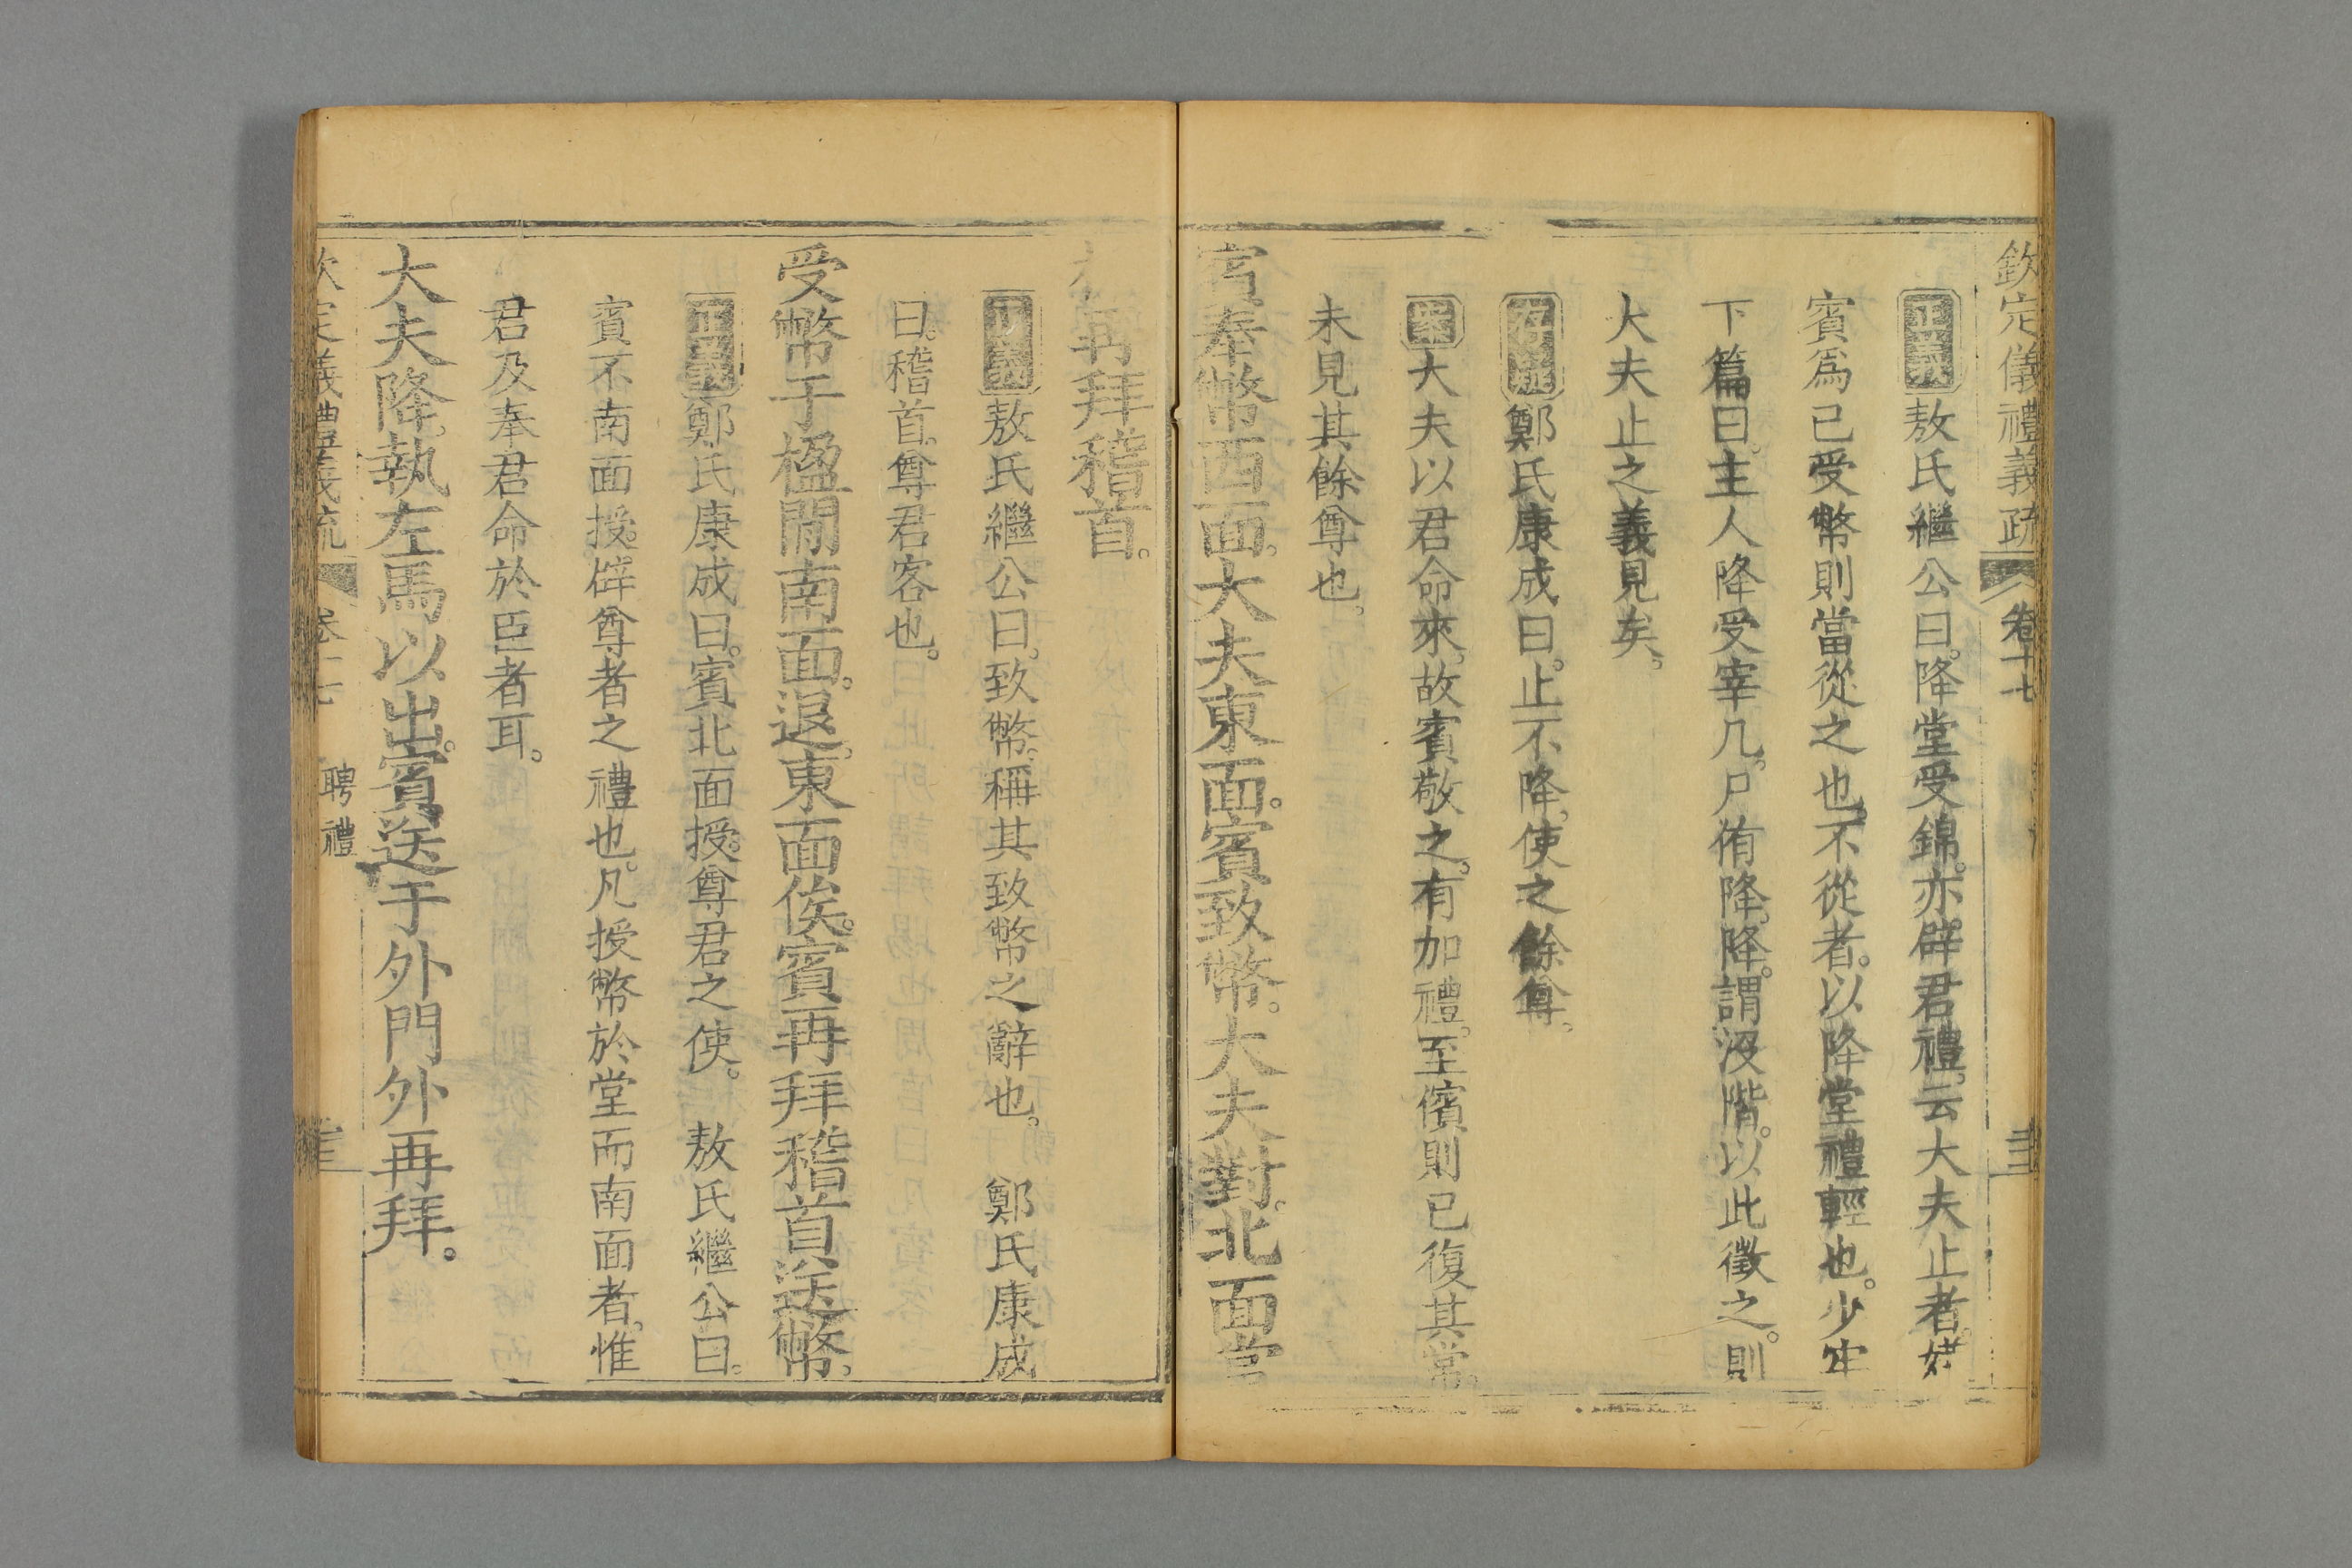 欽定儀禮義疏 卷十七
正義敖氏繼公曰。降堂受錦。亦辟君禮。云大夫止者。嫌
賓爲已受幣則當從之也。不從者。以降堂禮輕也。少牢
下篇曰。主人降受宰几。尸侑降。降。謂沒階。以此徵之。則
大夫止之義見矣。
存疑鄭氏康成曰。止不降。使之餘尊。
案大夫以君命來。故賓敬之。有加禮。至儐則已復其常。
未見其餘尊也。
賓奉幣西面。大夫東面。賓致幣。大夫對。北面當
再拜稽首。
正義敖氏繼公曰。致幣。稱其致幣之辭也。 鄭氏康成
曰。稽首。尊君客也。
受幣于楹閒南面。退。東面俟。賓再拜稽首送幣。
正義鄭氏康成曰。賓北面授。尊君之使。 敖氏繼公曰。
賓不南面授。辟尊者之禮也。凡授幣於堂而南面者。惟
君及奉君命於臣者耳。
大夫降。執左馬以出。賓送于外門外再拜。
欽定儀禮義疏 卷十七 聘禮